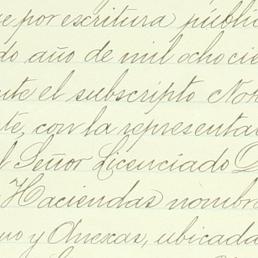 e por escritura públic
do año de mil ochocie
nte el subscripto Not
te, con la representa
l Señor Licenciado D
Haciendas nombra
no y Anexas, ubicada